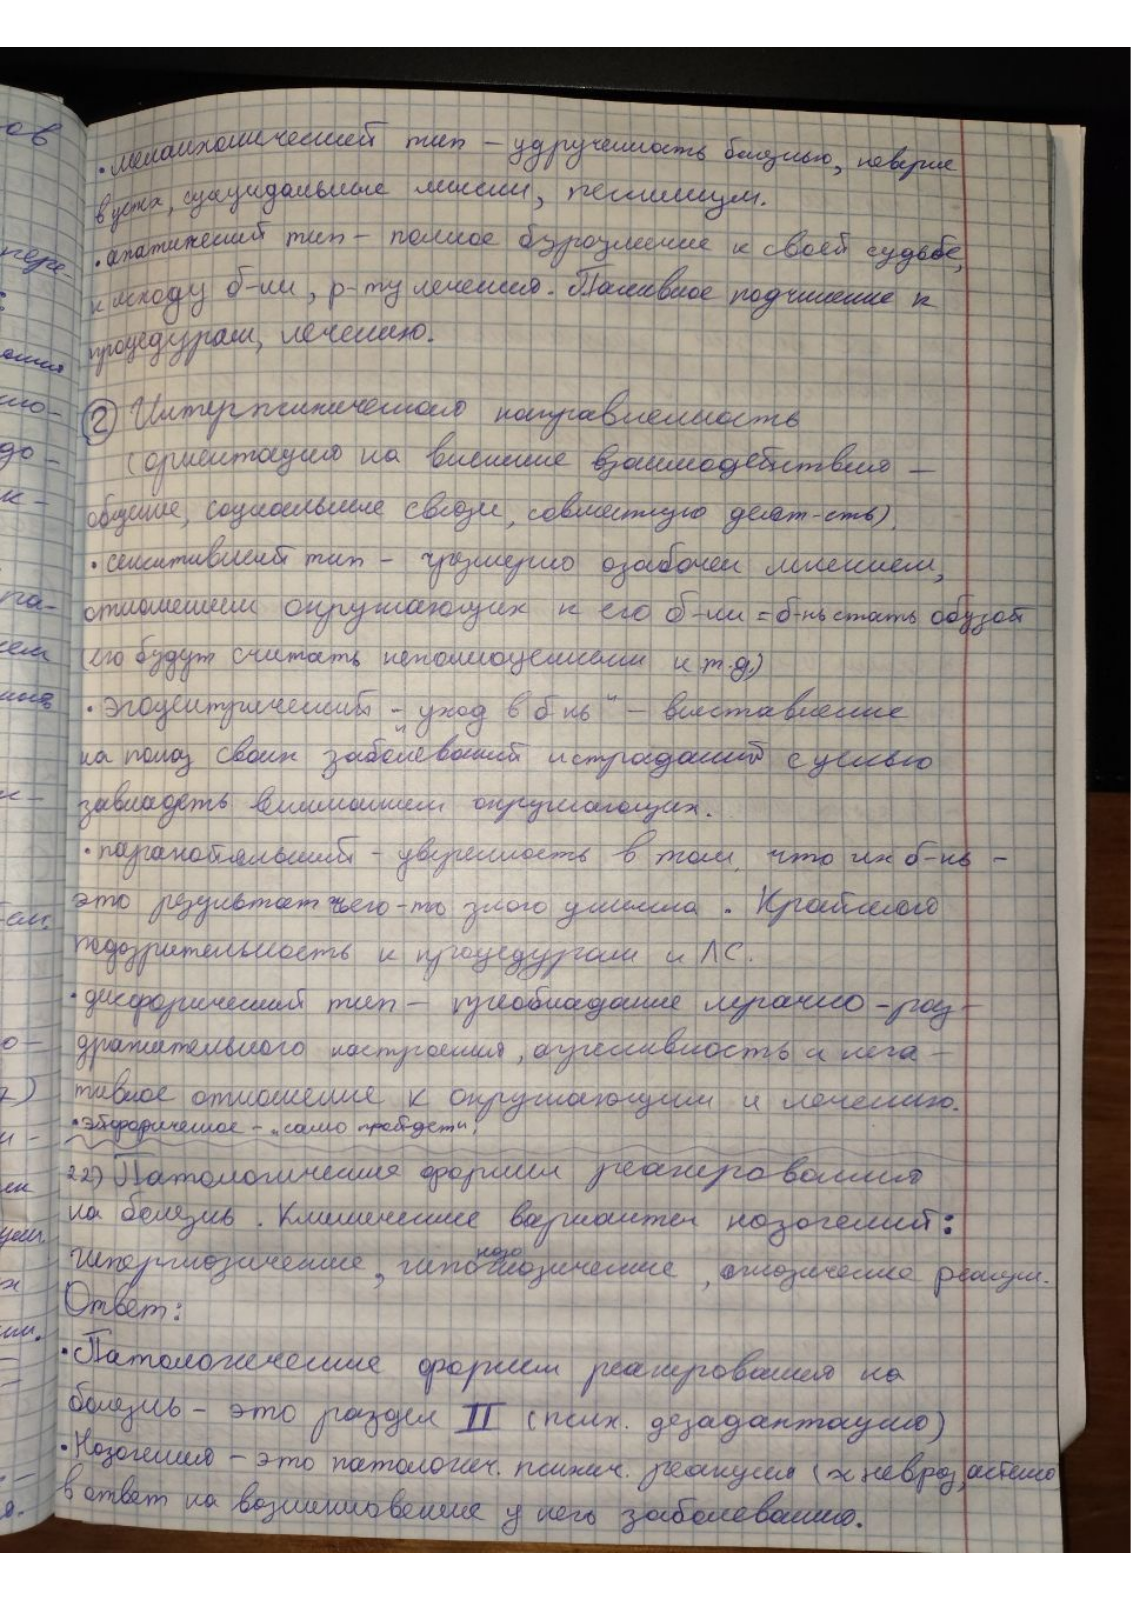 ов
• меланхолический тип – удрученность болезнью, неверие
в успех, суицидальные мысли, пессимизм.
• апатический тип – полное безразличие к своей судьбе,
пере-
к исходу б-ни, р-ту лечения. Пассивное подчинение к
процедурам, лечению.
② Интерпсихическая направленность
(ориентация на внешние взаимодействия –
до-
общение, социальные связи, совместную деят-сть).
к-
• сенситивный тип – чрезмерно озабочен мнением,
отношением окружающих к его б-ни = б-нь стать обузой
(его будут считать неполноценным и т.д.)
• эгоцентрический – „уход в б-нь“ – выставление
на показ своих заболеваний и страданий с целью
завладеть вниманием окружающих.
• паранойяльный – уверенность в том, что их б-нь –
это результат чего-то злого умысла. Крайняя
подозрительность к процедурам и ЛС.
• дисфорический тип – преобладание мрачно-раз-
дражительного настроения, агрессивность и нега-
тивное отношение к окружающим и лечению.
• эйфорическое – „само пройдет“,
22) Патологические формы реагирования
на болезнь. Клинические варианты нозогений:
гипернозические, гипонозогнозические, анозические реакции.
Ответ:
• Патологические формы реагирования на
болезнь – это раздел II (псих. дезадаптация)
• Нозогения – это патологич. психич. реакция (≈ невроз, астено
в ответ на возникновение у него заболевания.